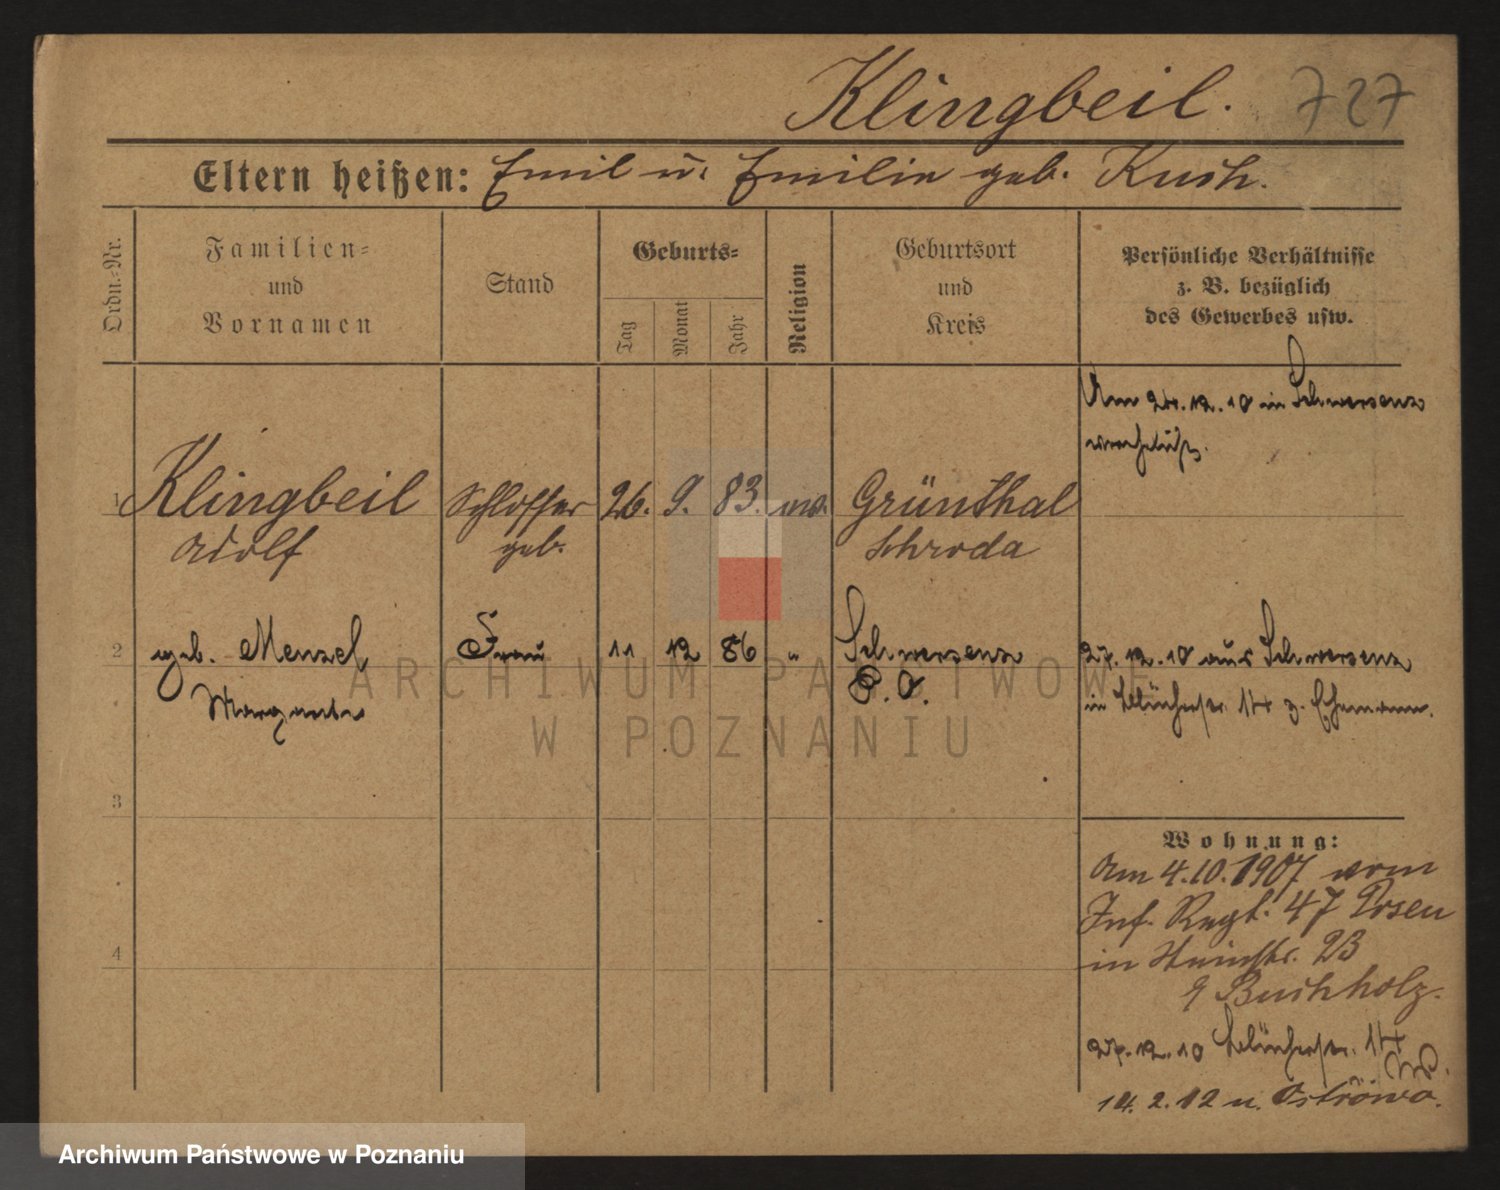 Klingbeil. 727
Eltern heißen: Emil u. Emilie geb. Kush.
Ordn.-Nr.
Familien-
und
Vornamen
Stand
Geburts-
Tag
Monat
Jahr
Religion
Geburtsort
und
Kreis
Persönliche Verhältnisse
z. B. bezüglich
des Gewerbes usw.
Am 24.12.10 in Schwersenz
verehelicht.
1 Klingbeil Schlosser 26. 9. 83. ev. Grünthal
Adolf geb. Schroda
2 geb. Menzel, Frau 11 12 86 " Schwersenz
Margarete P. O.
27.12.10 aus Schwersenz
in Blücherstr. 14 z. Ehemann.
3
4
Wohnung:
Am 4.10.1907 vom
Inf. Regt. 47 Posen
in 23
Buchholz.
27.12.10 Blücherstr. 14
14.2.12 n. Ostrowo.
ARCHIWUM PAŃSTWOWE
W POZNANIU
Archiwum Państwowe w Poznaniu